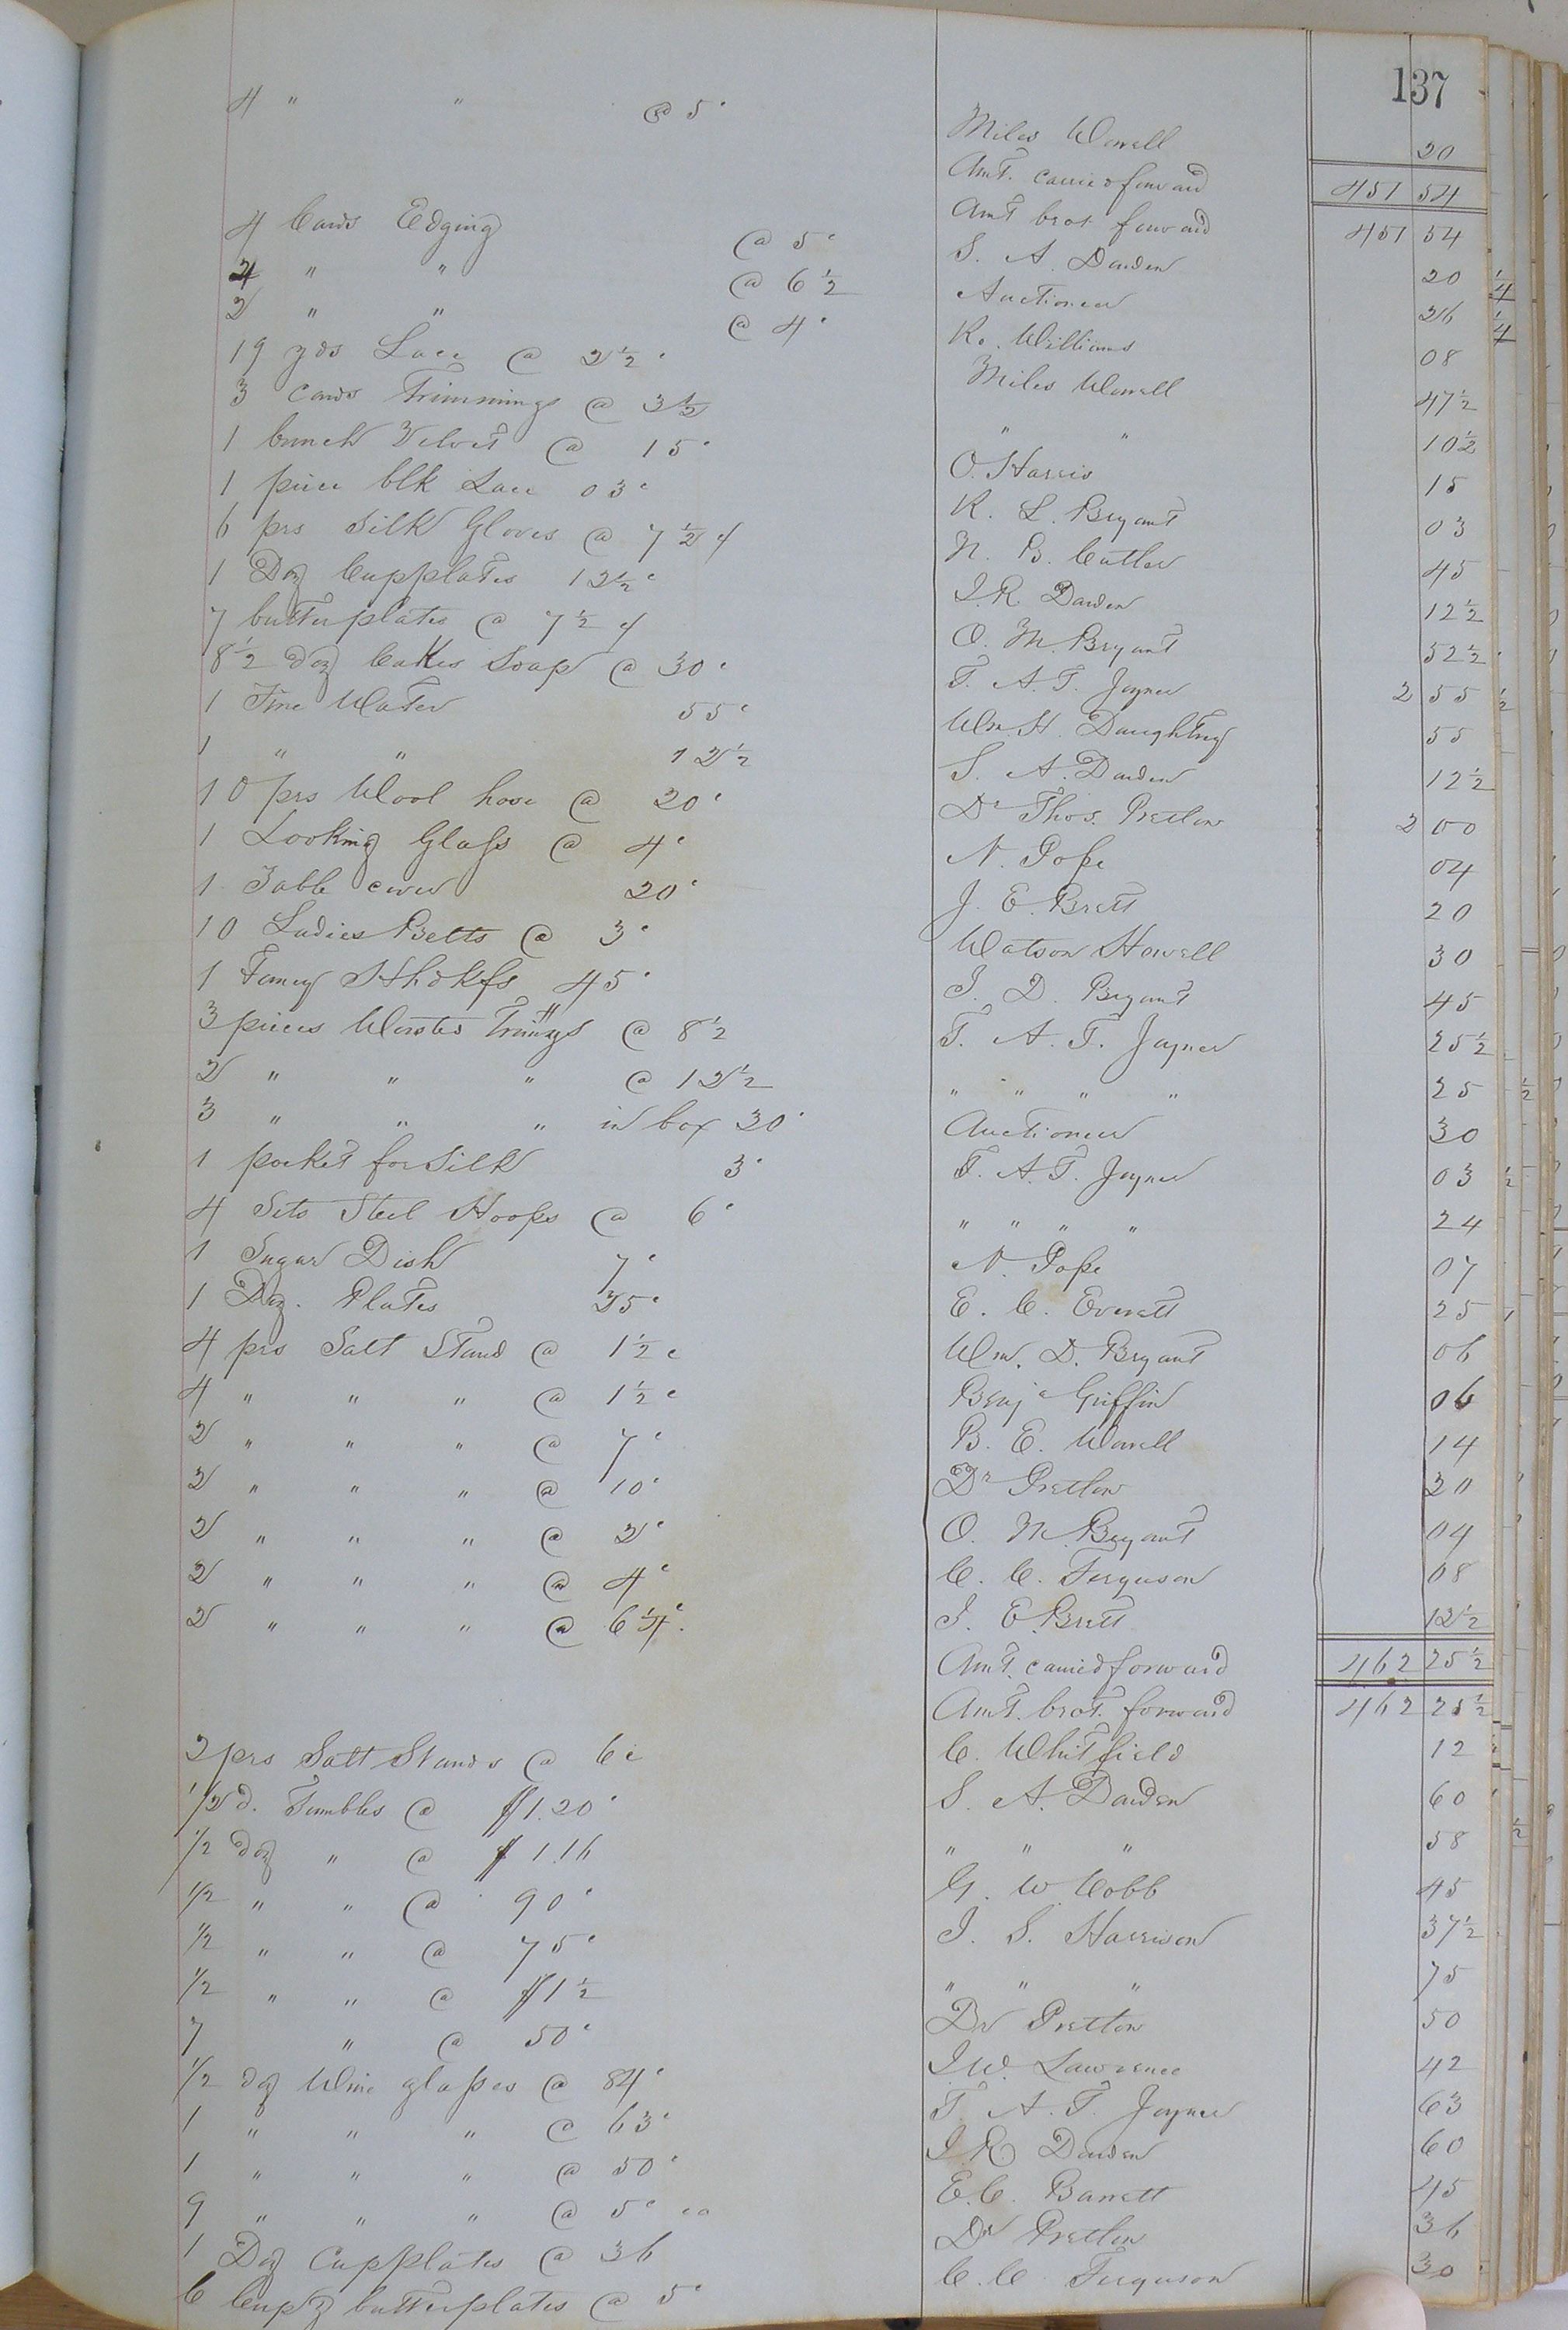 137
4 " " @ 5c Miles Worrell 20
Amt. carried forward 451 54
Amt brot forward 451 54
4 Cards Edging @ 5c S. A. Darden 20
4 " " @ 6 1/2 Auctioneer 26
2 " " @ 4c Ro. Williams 08
19 yds Lace @ 2 1/2c Miles Worrell 47 1/2
3 cards Trimmings @ 3 1/2 " " 10 1/2
1 bunch Velvet @ 15c O. Harris 15
1 piece blk Lace 03c R. L. Bryant 03
6 prs Silk Gloves @ 7 1/2 c N. B. Cutler 45
1 Doz Cupplates 12 1/2c J. R. Darden 12 1/2
7 butterplates @ 7 1/2 c O. M. Bryant 52 1/2
8 1/2 doz Cakes Soap @ 30c T. A. T. Joyner 2 55
1 Fine Water 55c Wm. H. Daughtry 55
1 " " 12 1/2 S. A. Darden 12 1/2
10 prs Wool hose @ 20c Dr Thos. Pretlow 2 00
1 Looking Glass @ 4c N. Pope 04
1 Table cover 20c J. E. Brett 20
10 Ladies Belts @ 3c Watson Howell 30
1 Fancy Hhdkfs 45c J. D. Bryant 45
3 pieces Worsted Trimings @ 8 1/2 T. A. T. Joyner 25 1/2
2 " " " @ 12 1/2 " " " " 25
3 " " " in box 30c Auctioneer 30
1 pocket for Silk 3c T. A. T. Joyner 03
4 Sets Steel Hoops @ 6c " " " " 24
1 Sugar Dish 7c N. Pope 07
1 Doz. Plates 25c E. C. Everett 25
4 prs Salt Stand @ 1 1/2 c Wm. D. Bryant 06
4 " " " @ 1 1/2 c Benj Griffin 06
2 " " " @ 7c B. E. Worrell 14
2 " " " @ 10c Dr Pretlow 20
2 " " " @ 2c O. M. Bryant 04
2 " " " @ 4c C. C. Ferguson 08
2 " " " @ 6 1/4c J. E. Brett 12 1/2
Amt. carried forward 462 25 1/2
Amt. brot. forward 462 25 1/2
2 prs Salt Stands @ 6c C. Whitfield 12
1/2 d. Tumbles @ $1.20c S. A. Darden 60
1/2 doz " @ $1.16 " " " 58
1/2 " " @ 90c G. W. Cobb 45
1/2 " " @ 75c J. S. Harrison 37 1/2
1/2 " " @ $1 1/2 " " " 75
7 " @ 50c Dr Pretlow 50
1/2 doz Wine glasses @ 84c J. W. Lawrence 42
1 " " " @ 63c T. A. T. Joyner 63
1 " " " @ 50c J R Darden 60
9 " " " @ 5c ea E. C. Barrett 45
1 Doz Cupplates @ 36 Dr Pretlow 36
6 butterplates @ 5c C. C. Ferguson 30